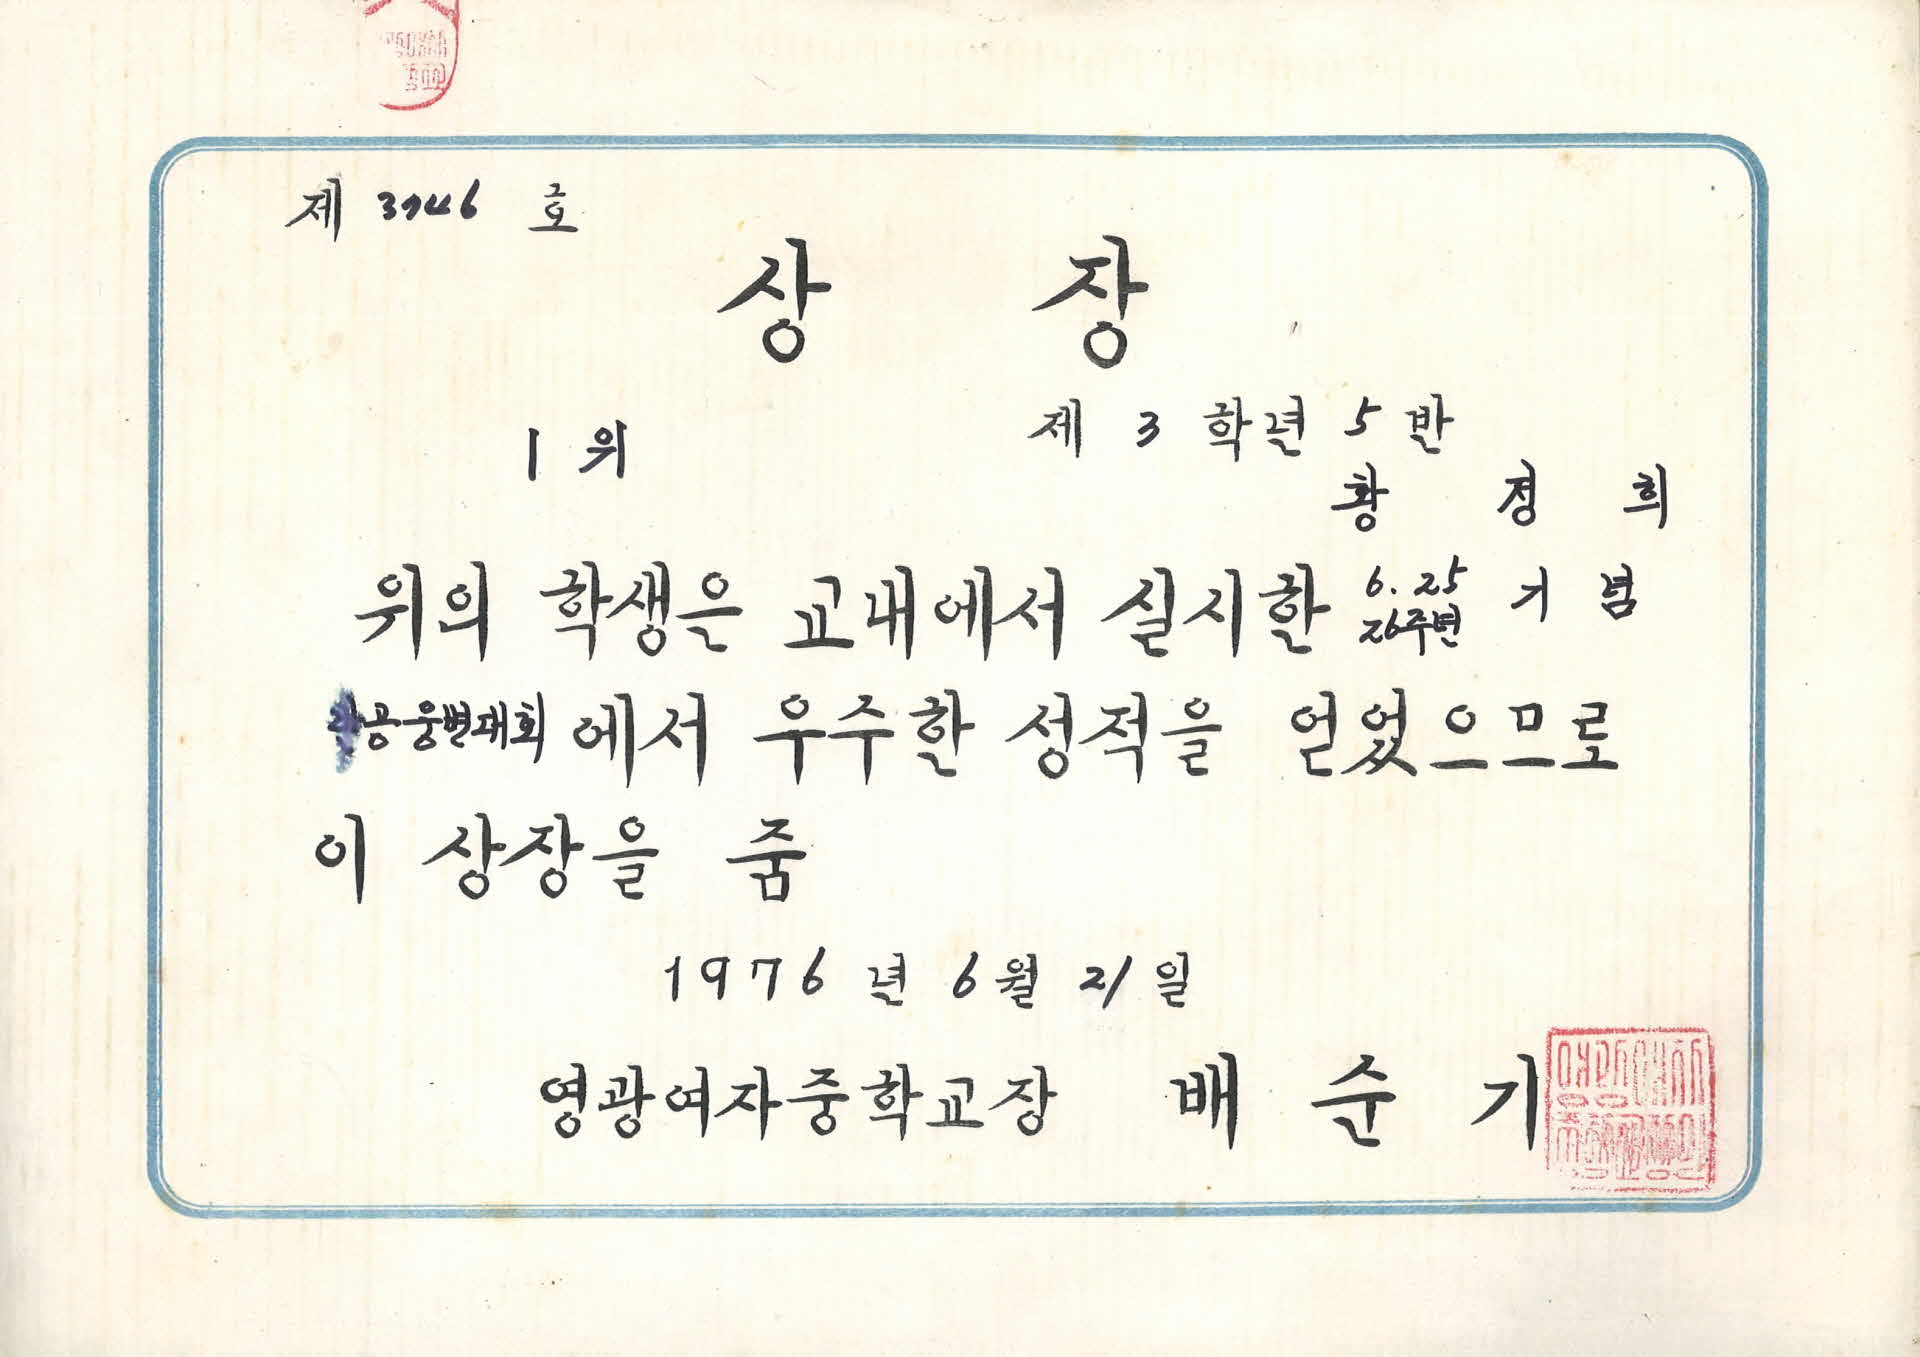 제 3746 호
상 장
1 위
제 3 학년 5 반
황 경 희
위의 학생은 교내에서 실시한 6.25 26주년 기념
공웅변대회에서 우수한 성적을 얻었으므로
이 상장을 줌
1976 년 6 월 21 일
영광여자중학교장 배 순 기